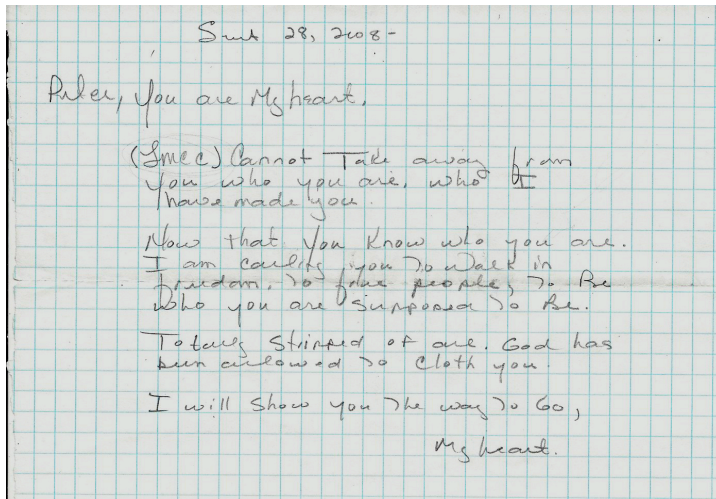 Sept 28, 2008-
you are My heart,
(Lmcc) Cannot Take away from
You who you are, who I
have made you.
Now that You Know who you are.
I am calling you To walk in
freedom, To free people, To Be
who you are supposed To Be.
Totally Stripped of all. God has
been allowed To Cloth you.
I will Show you The way To Go,
My heart.